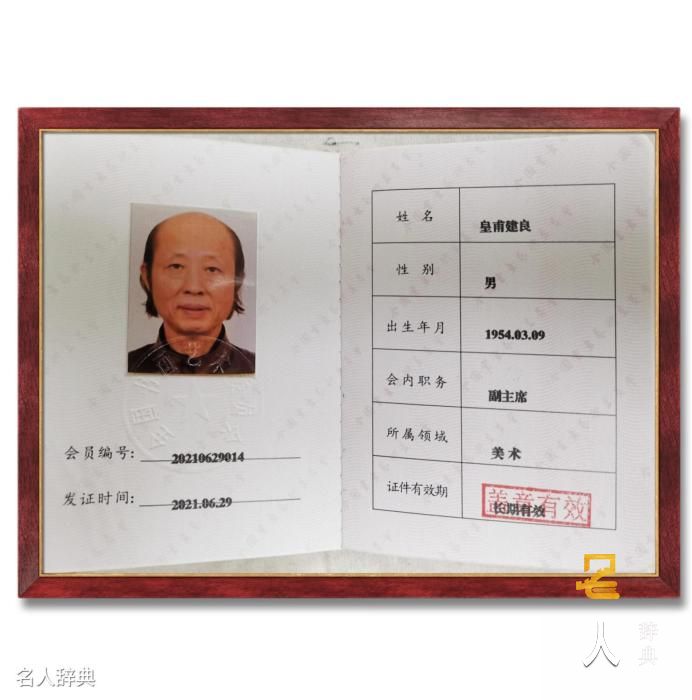 姓名
皇甫建良
性别
男
出生年月
1954.03.09
会内职务
副主席
所属领域
美术
证件有效期
长期有效
盖章有效
会员编号:
20210629014
发证时间:
2021.06.29
名人辞典
名人
辞典